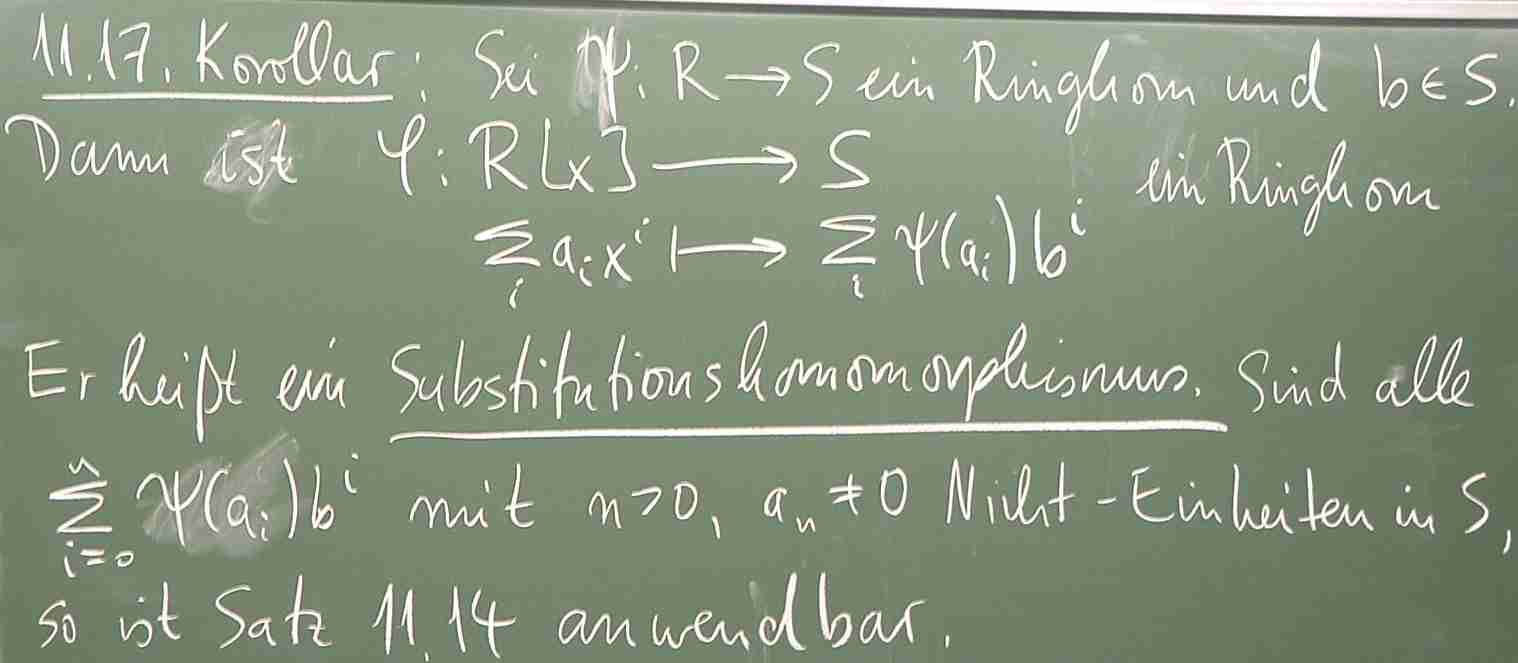 11.17. Korollar: Sei ψ: R → S ein Ringhom und b ∈ S.
Dann ist φ: R[x] ⟶ S ein Ringhom
∑_i a_i x^i ⟼ ∑_i ψ(a_i) b^i
Er heißt ein Substitutionshomomorphismus. Sind alle
∑_{i=0}^n ψ(a_i) b^i mit n>0, a_n ≠ 0 Nicht-Einheiten in S,
so ist Satz 11.14 anwendbar.